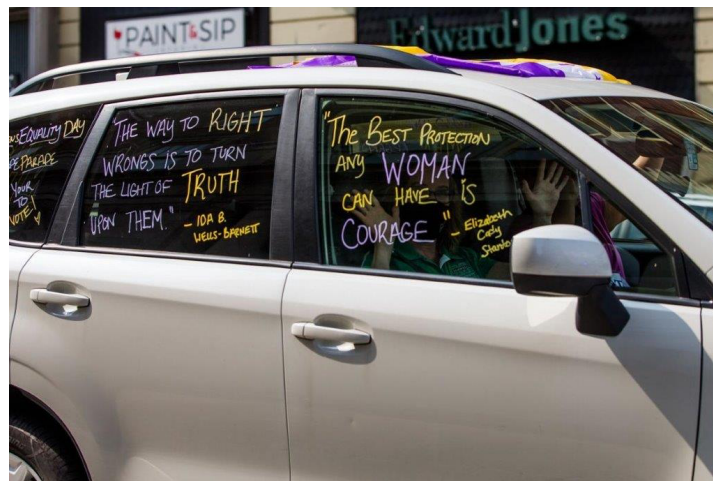 PAINT & SIP
Edward Jones
EQUALITY DAY
PARADE
YOUR
TO
VOTE!
"THE WAY TO RIGHT
WRONGS IS TO TURN
THE LIGHT OF TRUTH
UPON THEM."
- IDA B.
WELLS-BARNETT
"The BEST PROTECTION
ANY WOMAN
CAN HAVE IS
COURAGE"
- Elizabeth
Cady